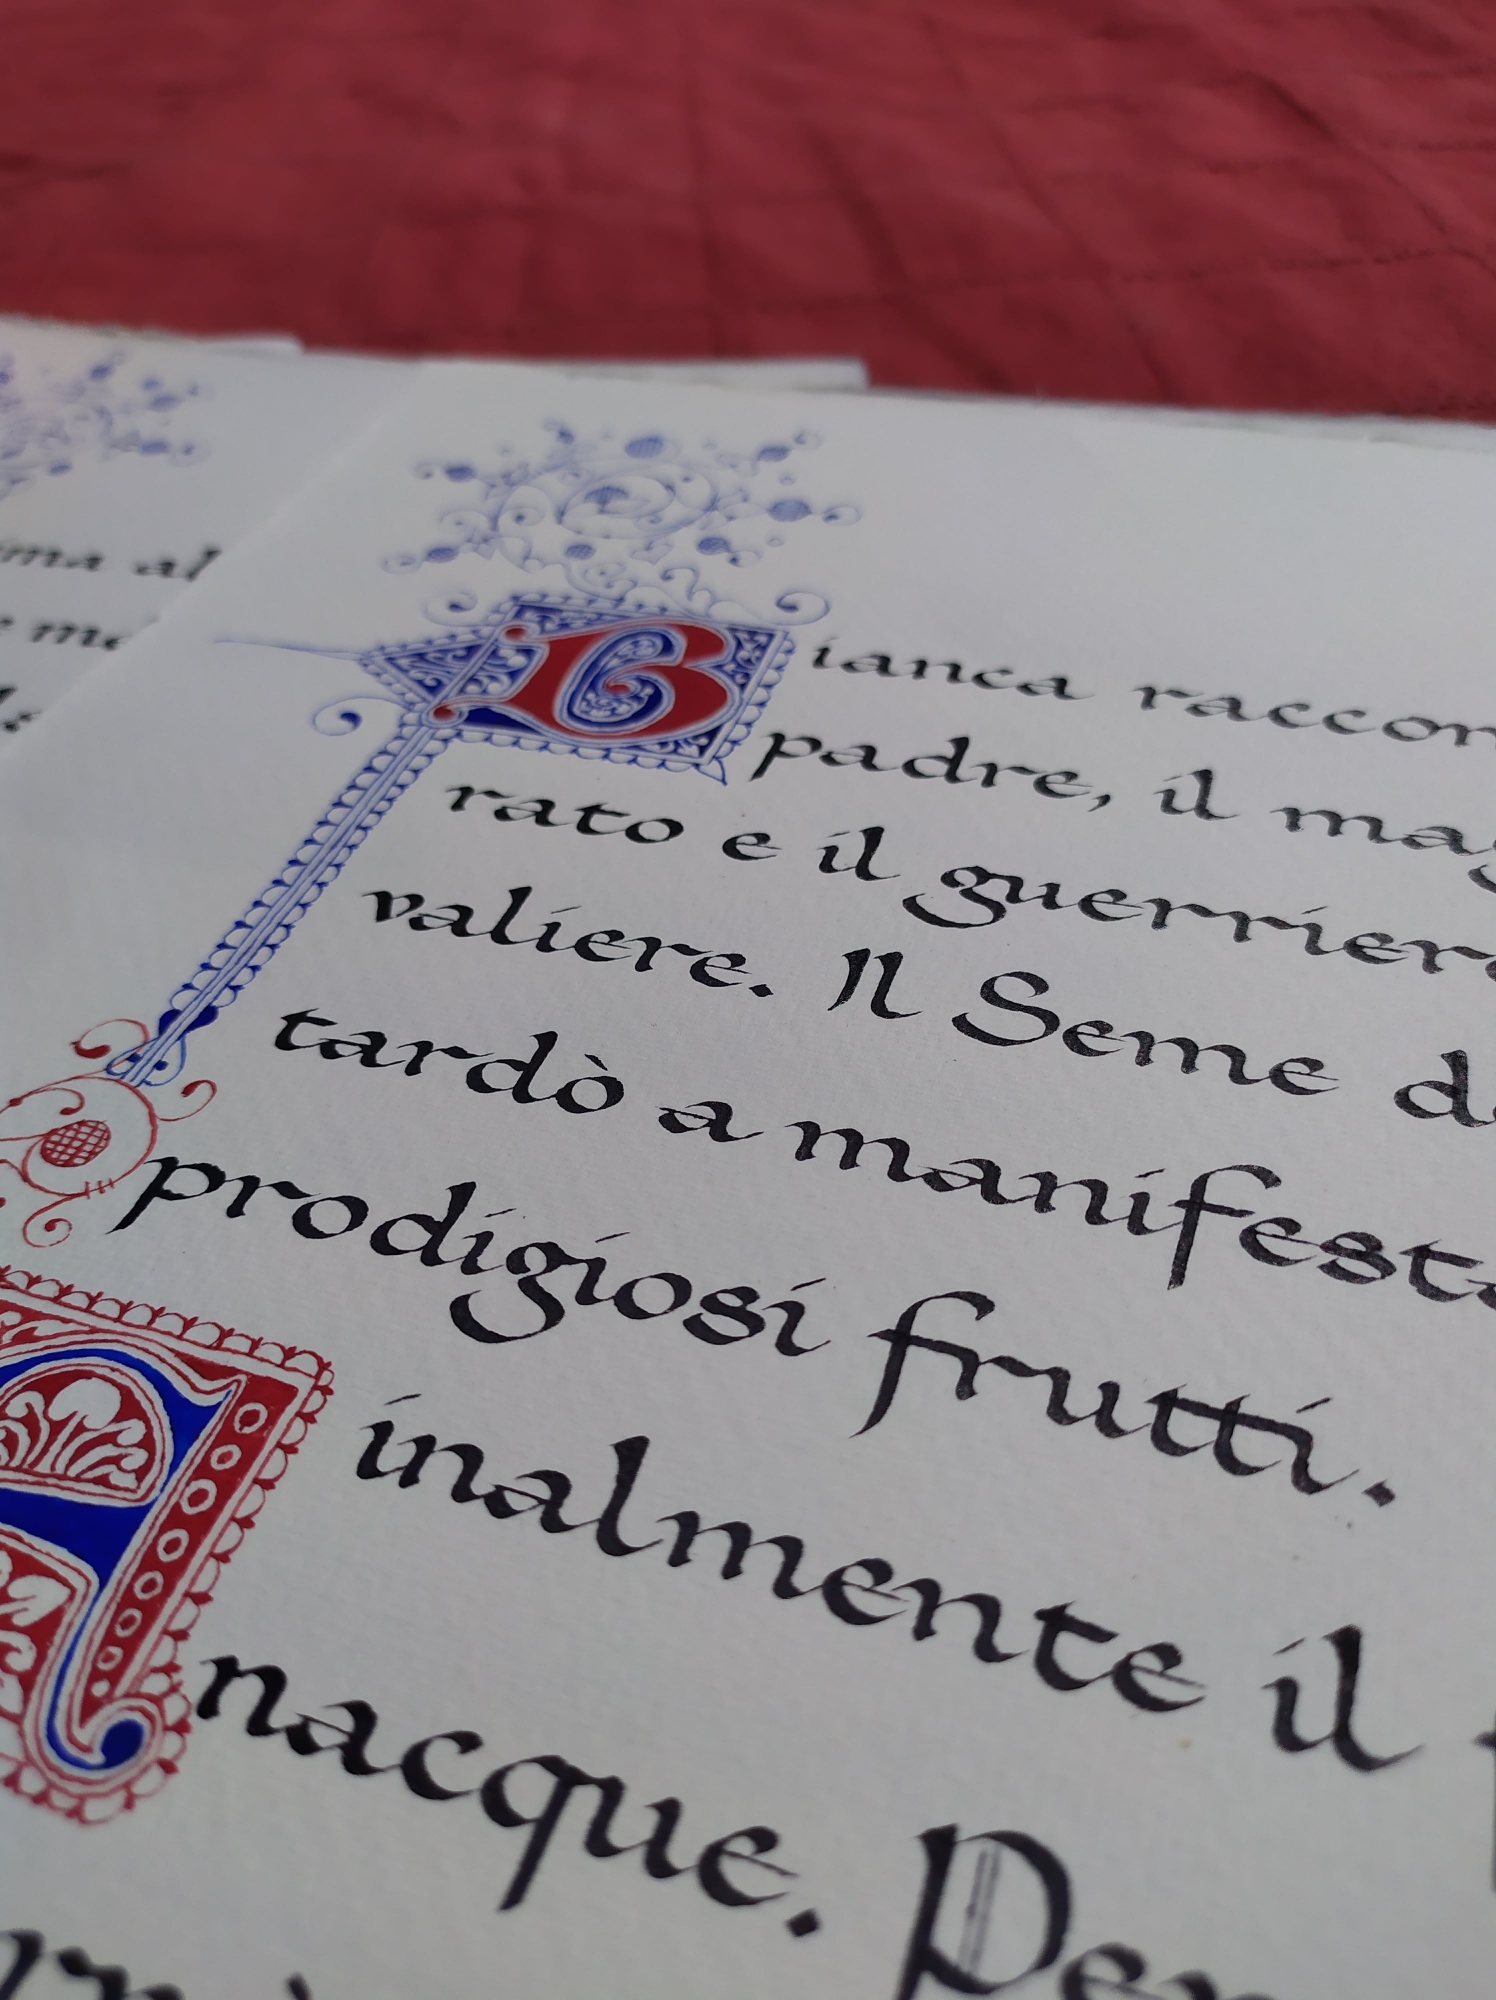 ma al
Bianca raccon
padre, il mag
rato e il guerriero
valiere. Il Seme d
tardò a manifest
prodigiosi frutti.
Finalmente il
nacque. Per